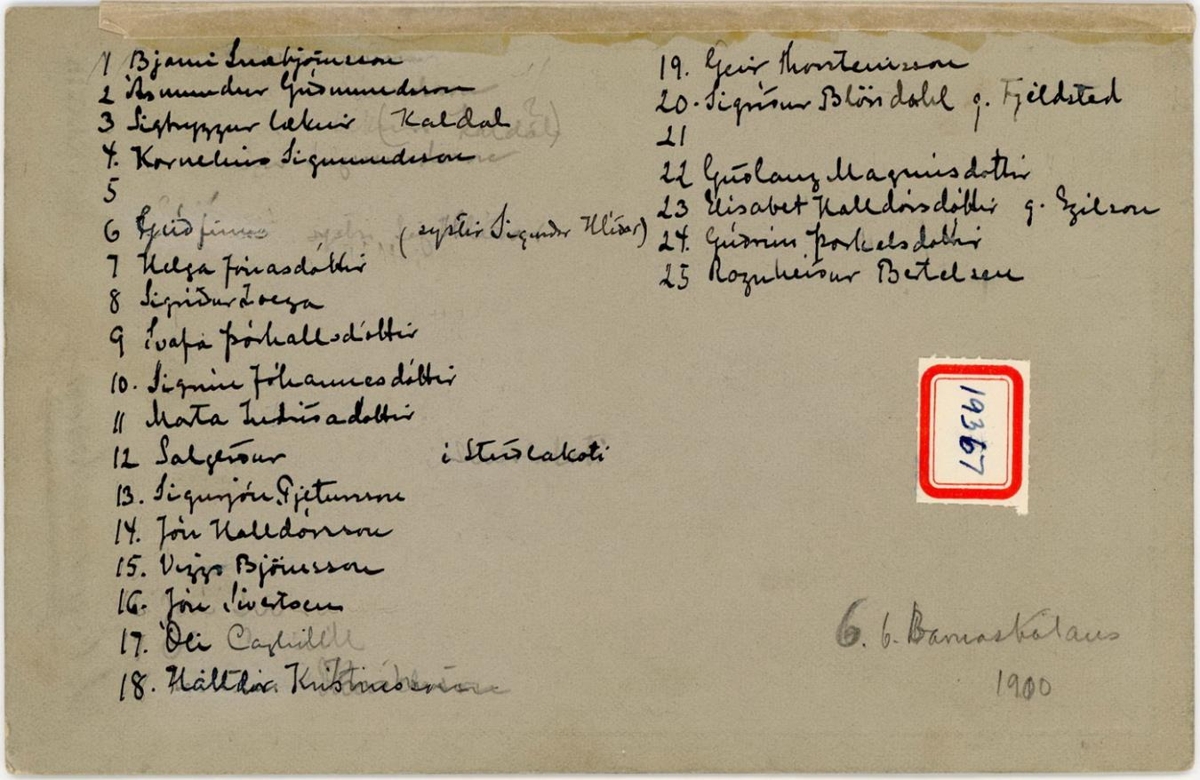 1 Bjarni Snæbjörnsson
2 Ásmundur Guðmundsson
3 Sigtryggur læknir (Kaldal)
4. Kornelíus Sigmundsson
5
6 Guðfinna (systir Sigurðar Hlíðar)
7 Helga Jónasdóttir
8 Sigríður Zoega
9 Svafa Þórhallsdóttir
10. Sigrún Jóhannesdóttir
11 Marta Indriðadóttir
12 Salgerður í Stuðlakoti
13. Sigurjón Pjetursson
14. Jón Halldórsson
15. Viggo Björnsson
16. Jón Sivertsen
17. Óli
18. Halldór Kristinsson
19. Geir Thorsteinsson
20. Sigríður Blöndahl g. Fjeldsted
21
22 Guðlaug Magnúsdóttir
23 Elísabet Halldórsdóttir g. Egilson
24. Guðrún Þorkelsdóttir
25 Ragnheiður Bertelsen
19367
6. b. Barnaskólans
1900